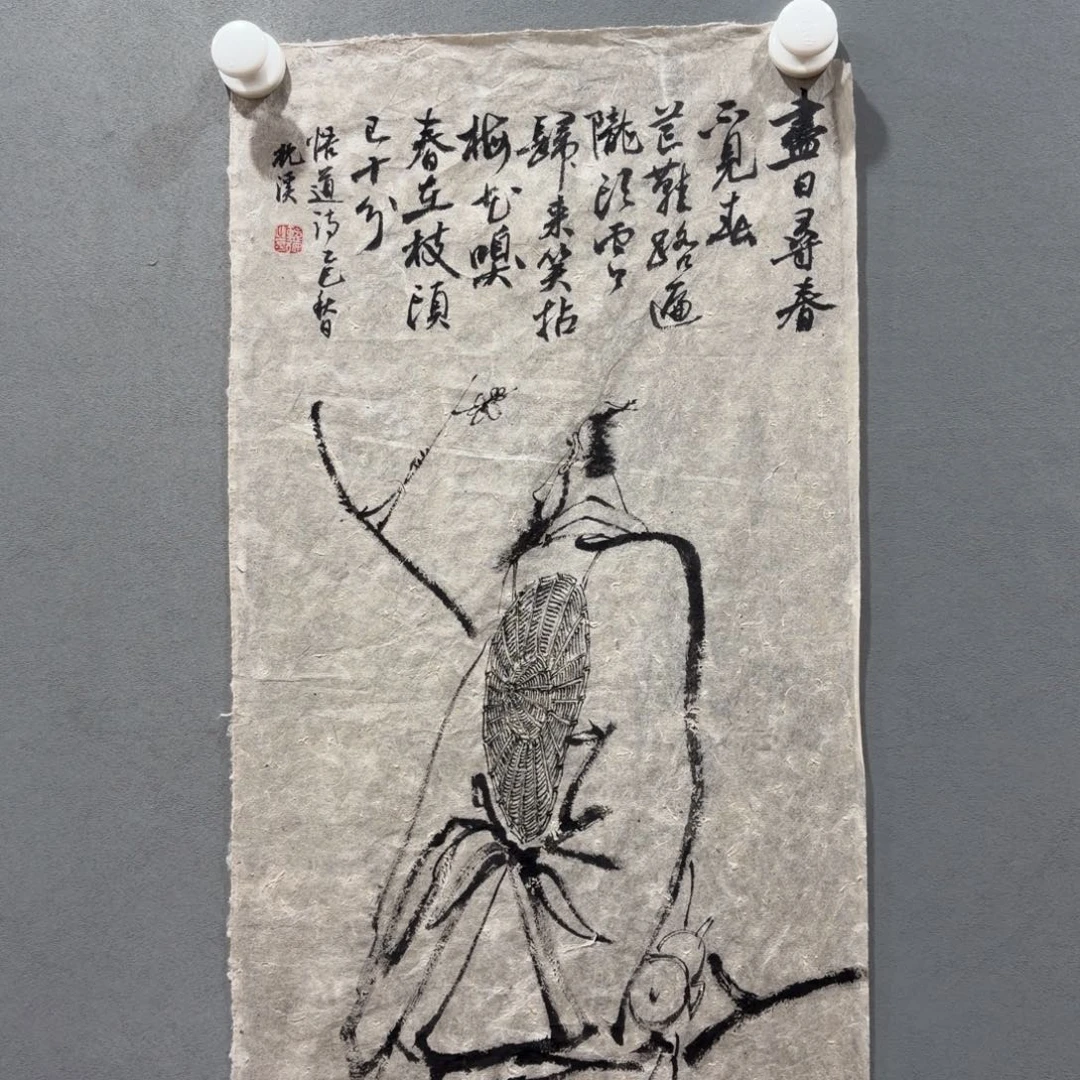 盡日尋春
不見春
芒鞋踏遍
隴頭雲
歸来笑拈
梅花嗅
春在枝頭
已十分
悟道诗乙巳秋日